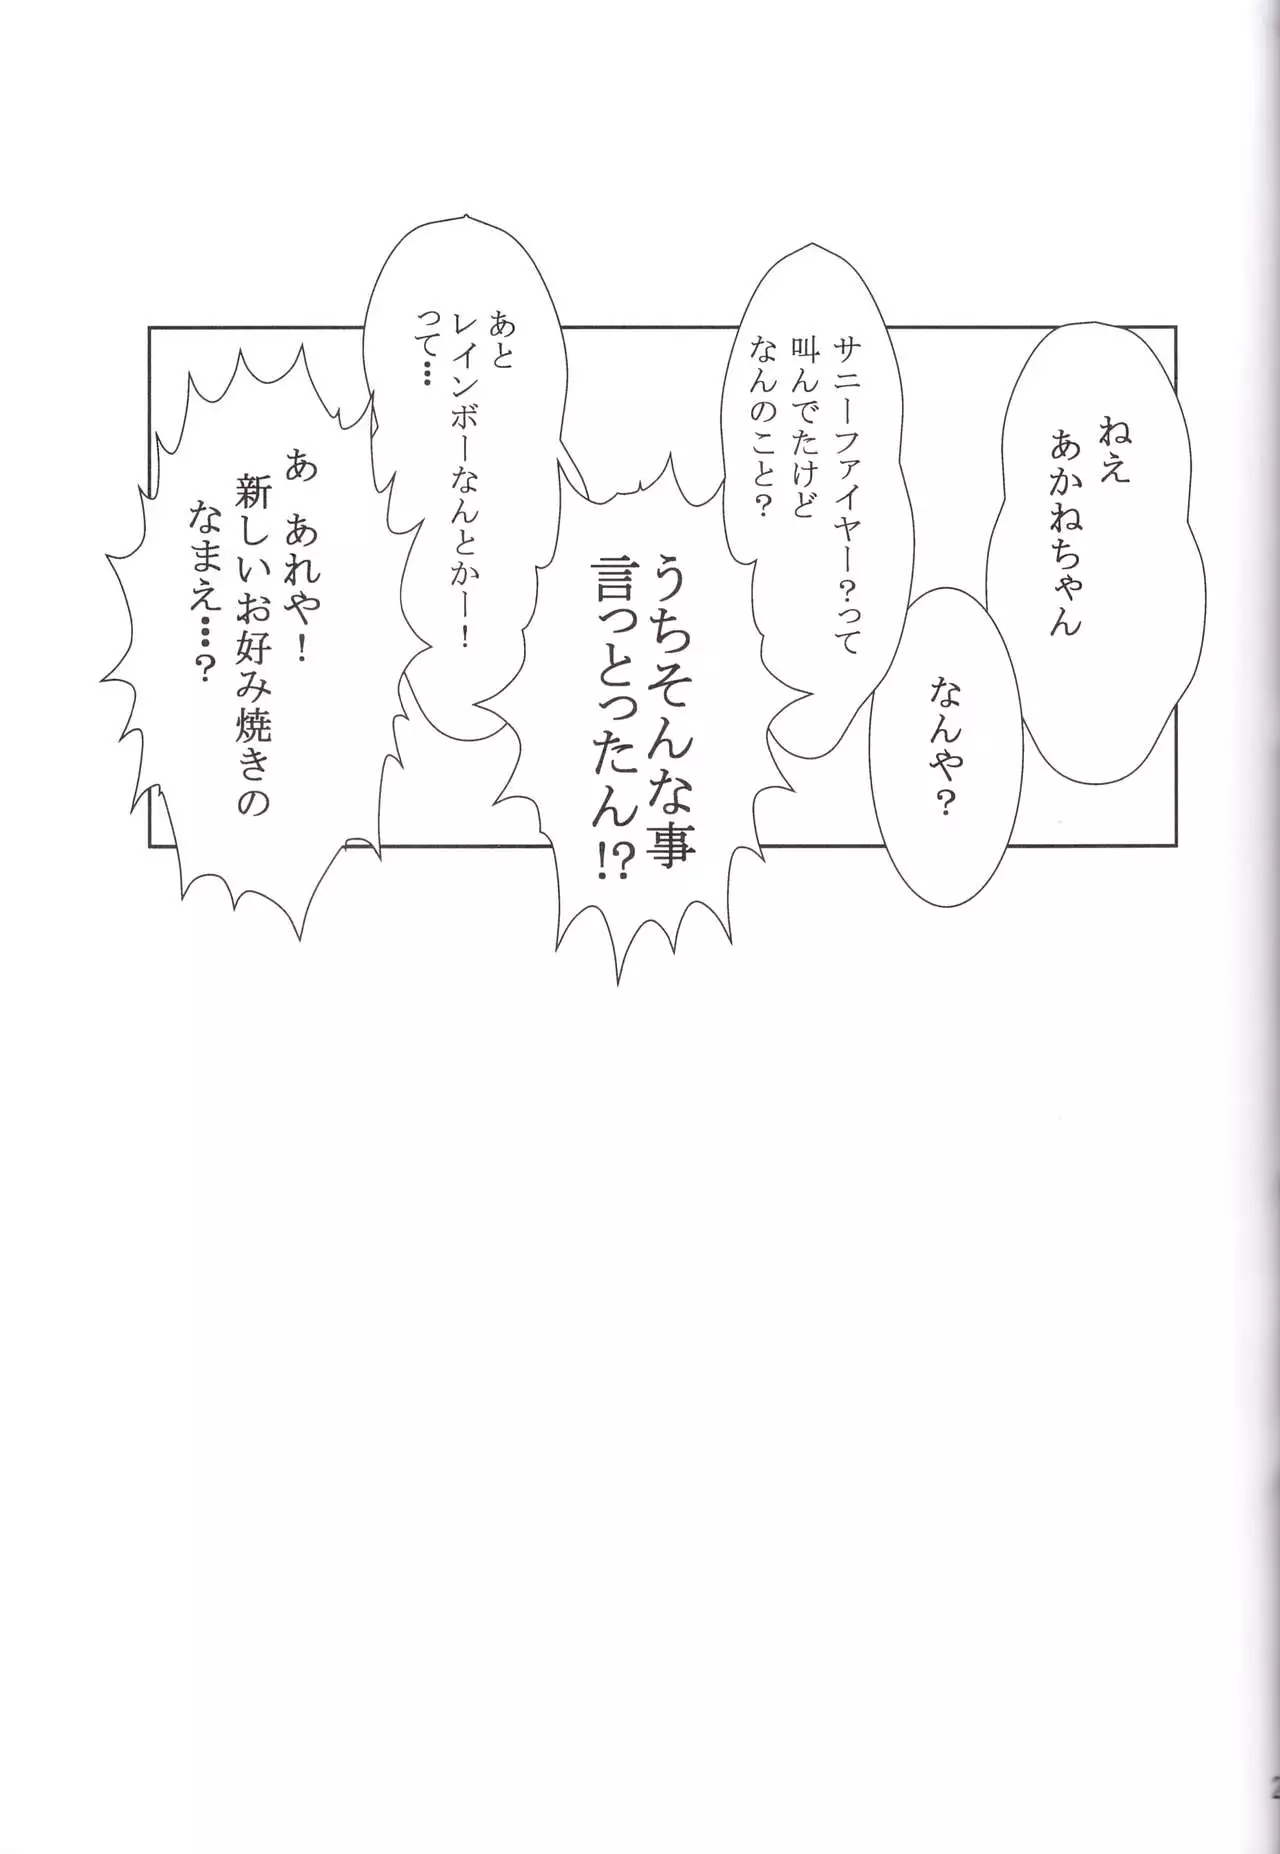 ねえ
あかねちゃん
なんや？
サニーファイヤー？って
叫んでたけど
なんのこと？
うちそんな事
言っとったん!?
あと
レインボーなんとかー！
って…
あ あれや！
新しいお好み焼きの
なまえ…？
2